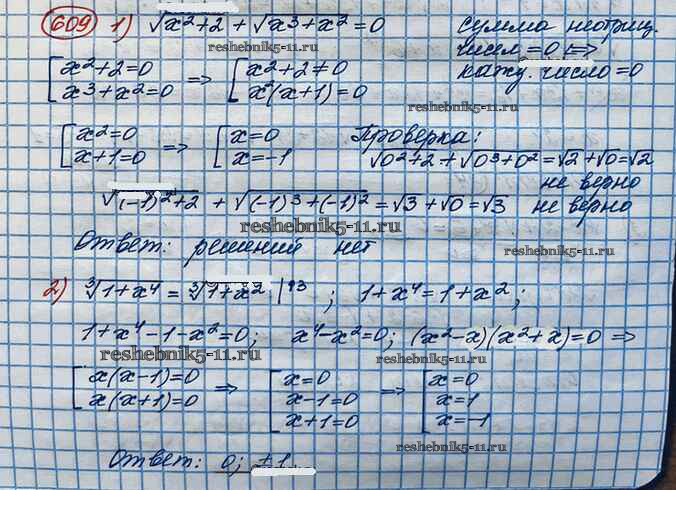 609 1) √x²+2 + √x³+x² = 0 Сумма неотриц.
reshebnik5-11.ru чисел =0 <=>
[x²+2=0 => [x²+2≠0 кажд. число =0
x³+x²=0 x²(x+1)=0 reshebnik5-11.ru
[x²=0 => [x=0 Проверка:
x+1=0 x=-1 √0²+2 + √0³+0² = √2+√0=√2
не верно
√(-1)²+2 + √(-1)³+(-1)² = √3+√0=√3 не верно
reshebnik5-11.ru
Ответ: решений нет reshebnik5-11.ru
2) ∛1+x⁴ = ∛1+x² |↑3 ; 1+x⁴=1+x²;
1+x⁴-1-x²=0; x⁴-x²=0; (x²-x)(x²+x)=0 =>
reshebnik5-11.ru reshebnik5-11.ru
[x(x-1)=0 => [x=0 => [x=0
x(x+1)=0 x-1=0 x=1
x+1=0 x=-1
reshebnik5-11.ru
Ответ: 0; ±1.